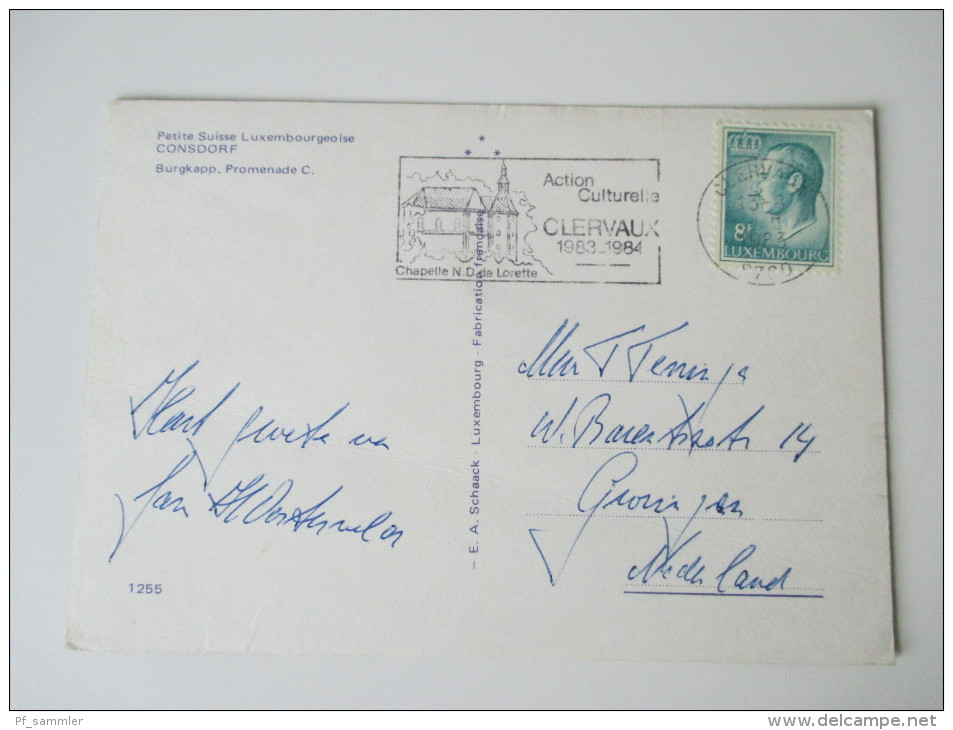 Petite Suisse Luxembourgeoise
CONSDORF
Burgkapp. Promenade C.
Action
Culturelle
CLERVAUX
1983-1984
Chapelle N.D. de Lorette
CLERVAUX
8F
LUXEMBOURG
— E. A. Schaack - Luxembourg - Fabrication française
Hart
Jan
T Teninga
W. 14
Groningen
Nederland
1255
Pf_sammler
www.delcampe.net